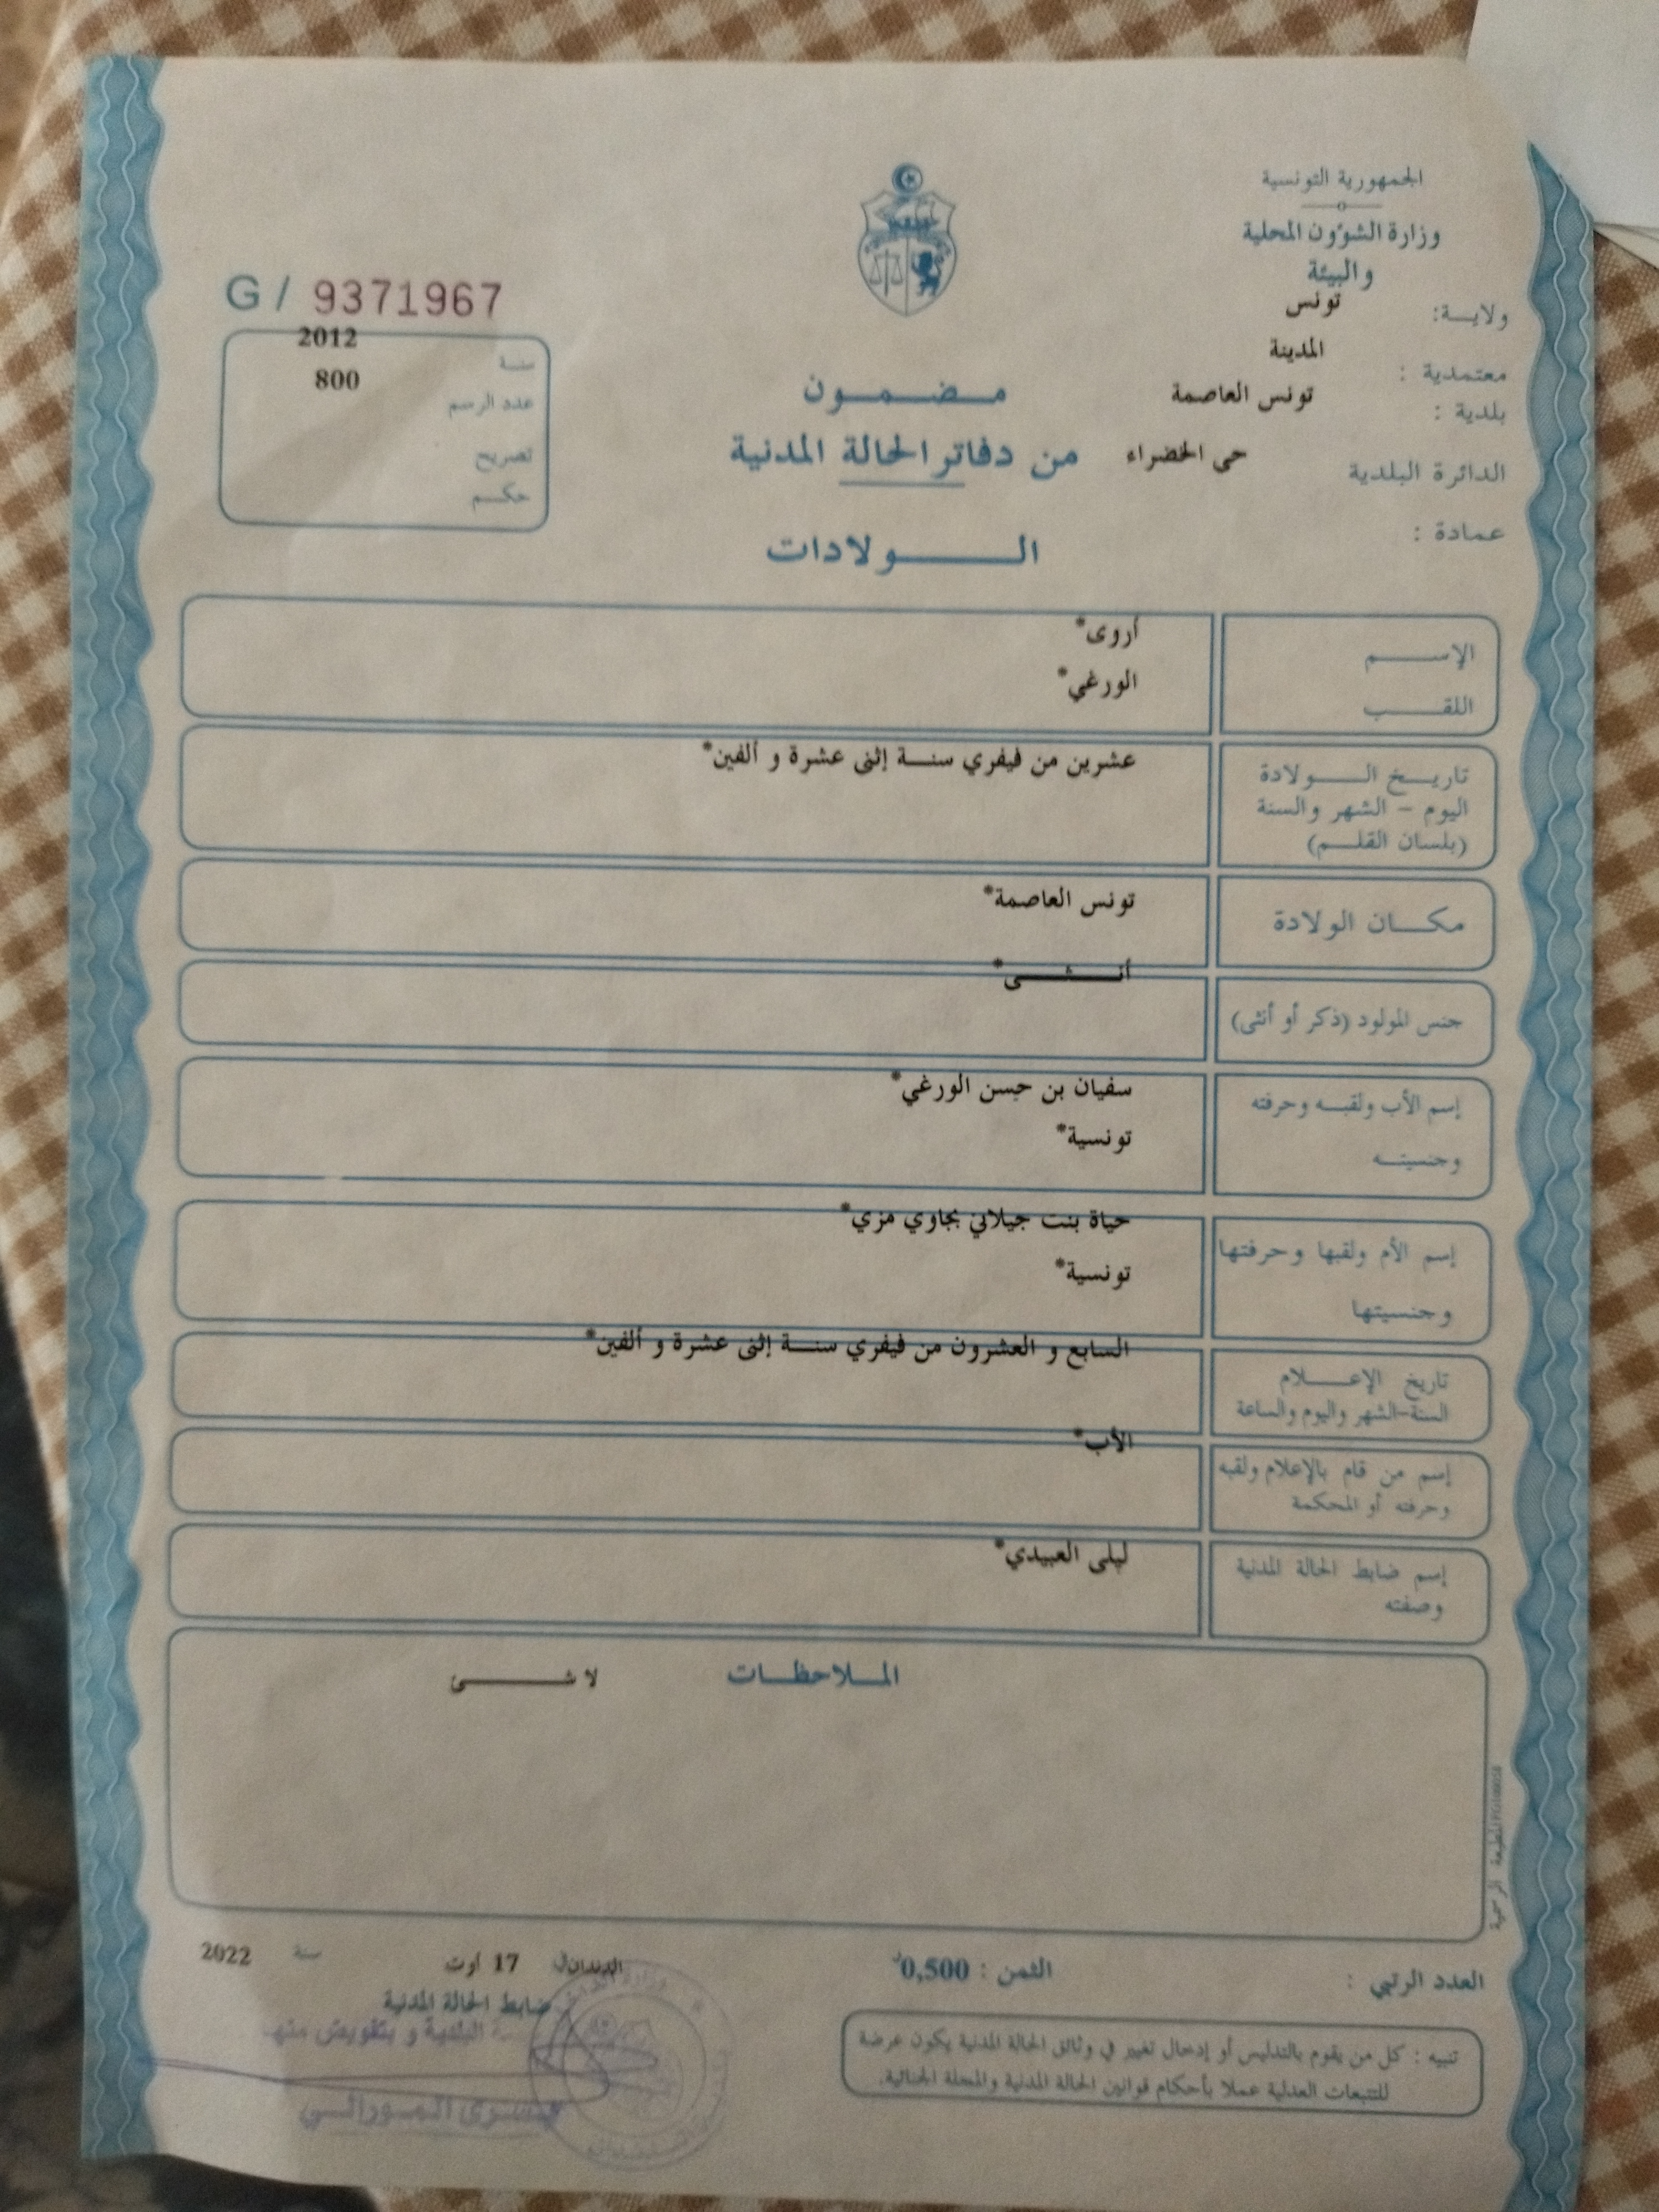 الجمهورية التونسية
وزارة الشؤون المحلية
والبيئة
ولايـــة: تونس
معتمدية : المدينة
بلدية : تونس العاصمة
الدائرة البلدية حي الخضراء
عمادة :
مـــضـــمـــون
من دفاتر الحالة المدنية
الـــــولادات
G / 9371967
سنة 2012
عدد الرسم 800
تصريح
حكــم
الإســـــم أروى*
اللقـــب الورغي*
تاريــخ الــــولادة عشرين من فيفري سنـــة إثنى عشرة و ألفين*
اليوم – الشهر والسنة
(بلسان القلـــم)
مكـــان الولادة تونس العاصمة*
جنس المولود (ذكر أو أنثى) أنـــثـــى*
إسم الأب ولقبــه وحرفته سفيان بن حسن الورغي*
وجنسيتــه تونسية*
إسم الأم ولقبها وحرفتها حياة بنت جيلاني بجاوي مزي*
وجنسيتها تونسية*
تاريخ الإعـــلام السابع و العشرون من فيفري سنـــة إثنى عشرة و ألفين*
السنة-الشهر واليوم والساعة
إسم من قام بالإعلام ولقبه الأب*
وحرفته أو المحكمة
إسم ضابط الحالة المدنية ليلى العبيدي*
وصفته
المـلاحظـــات لا شـــــئ
المطبعة الرسمية
العدد الرتبي :
الثمن : 0,500د
الدندان في 17 أوت سنة 2022
ضابط الحالة المدنية
البلدية و بتفويض منها
تنبيه : كل من يقوم بالتدليس أو إدخال تغيير في وثائق الحالة المدنية يكون عرضة
للتتبعات العدلية عملا بأحكام قوانين الحالة المدنية والمجلة الجنائية.